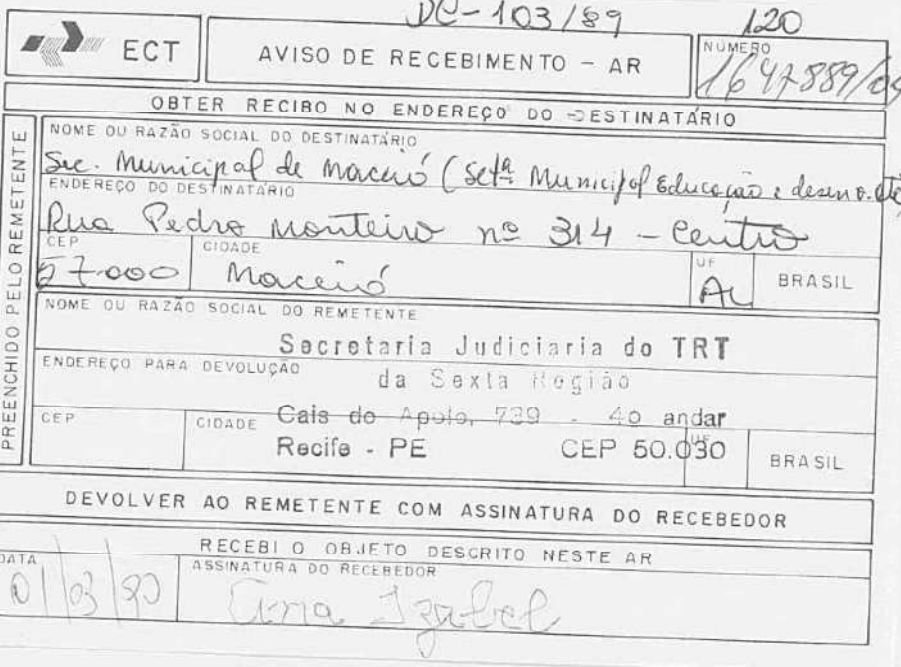 DC-103/89 120
ECT
AVISO DE RECEBIMENTO - AR
NÚMERO
1647889/
OBTER RECIBO NO ENDEREÇO DO DESTINATÁRIO
PREENCHIDO PELO REMETENTE
NOME OU RAZÃO SOCIAL DO DESTINATÁRIO
Sec. Municipal de Maceió (Setª Municipal Educação e desenv.
ENDEREÇO DO DESTINATÁRIO
Rua Pedro Monteiro nº 314 - Centro
CEP CIDADE UF
57-000 Maceió AL BRASIL
NOME OU RAZÃO SOCIAL DO REMETENTE
Secretaria Judiciaria do TRT
ENDEREÇO PARA DEVOLUÇÃO
da Sexta Região
CEP CIDADE Cais do Apolo, 739 - 4o andar
Recife - PE CEP 50.030 UF BRASIL
DEVOLVER AO REMETENTE COM ASSINATURA DO RECEBEDOR
RECEBI O OBJETO DESCRITO NESTE AR
DATA ASSINATURA DO RECEBEDOR
01/03/90 Ana Izabel